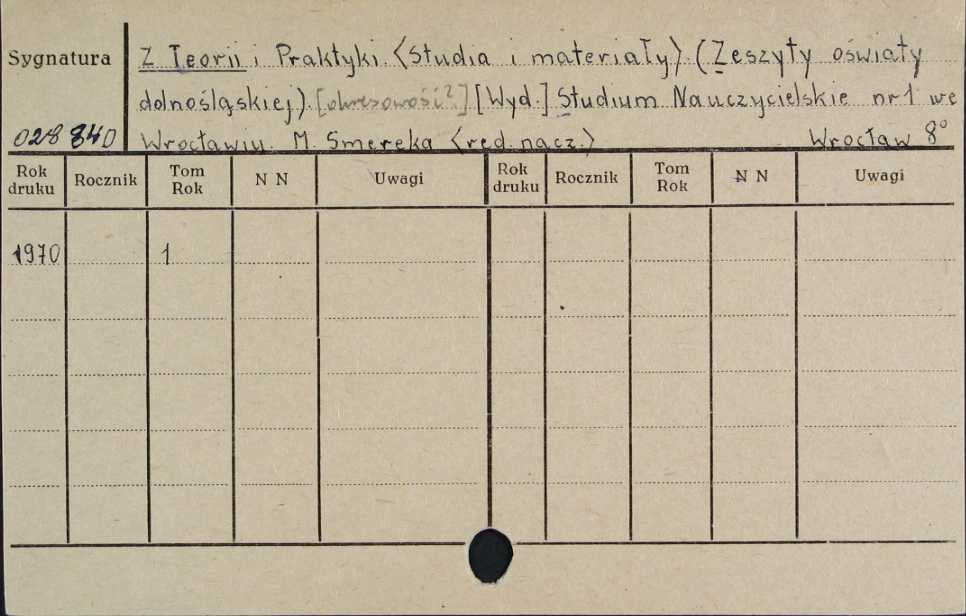 Sygnatura
Z Teorii i Praktyki. <Studia i materiały>. (Zeszyty oświaty
dolnośląskiej). [okresowość?] [Wyd.] Studium Nauczycielskie nr 1 we
028 840 Wrocławiu. M. Smereka <red. nacz.> Wrocław 8°
Rok druku Rocznik Tom Rok N N Uwagi Rok druku Rocznik Tom Rok N N Uwagi
1970 1